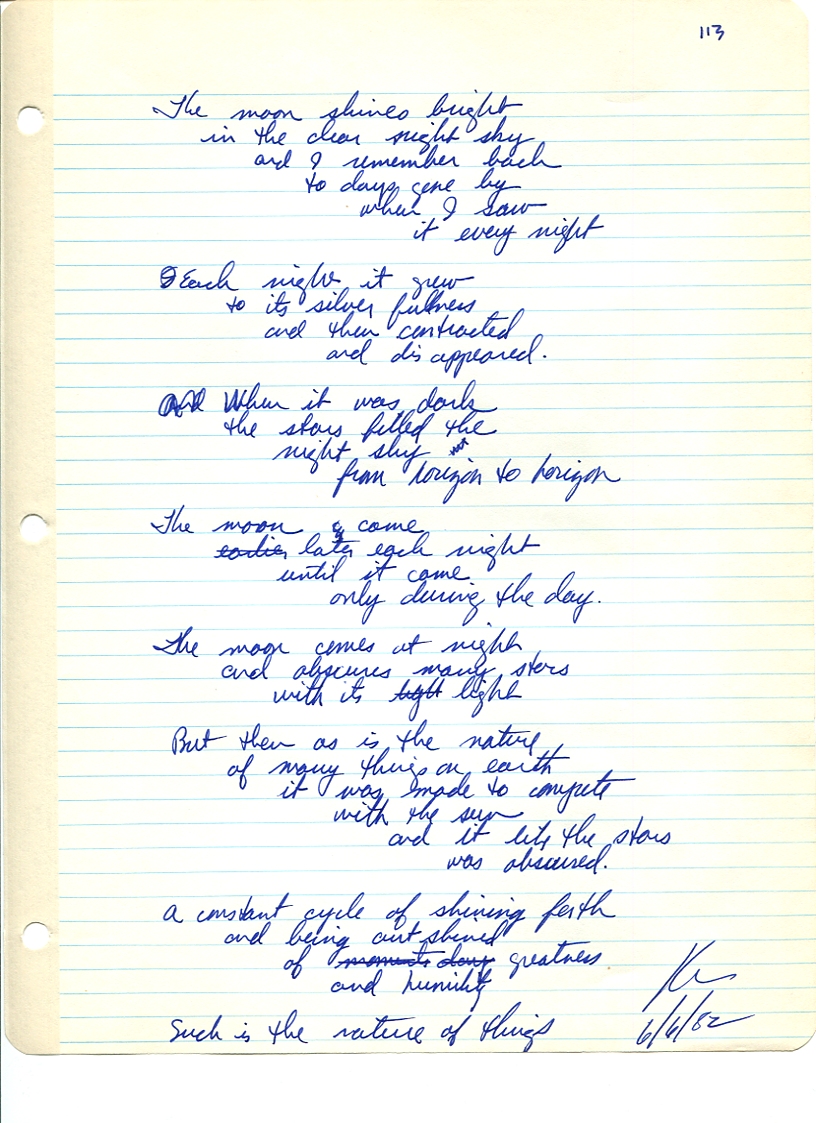 113
The moon shines bright
in the clear night sky
and I remember back
to days gone by
when I saw
it every night
Each night it grew
to its silver fullness
and then contracted
and disappeared.
And When it was dark
the stars filled the
night sky
from horizon to horizon
The moon came
earlier later each night
until it came
only during the day.
The moon comes at night
and obscures many stars
with its light light
But then as is the nature
of many things on earth
it was made to compete
with the sun
and it like the stars
was obscured.
A constant cycle of shining forth
and being out shined
of moments days greatness
and humility
Such is the nature of things
6/6/82